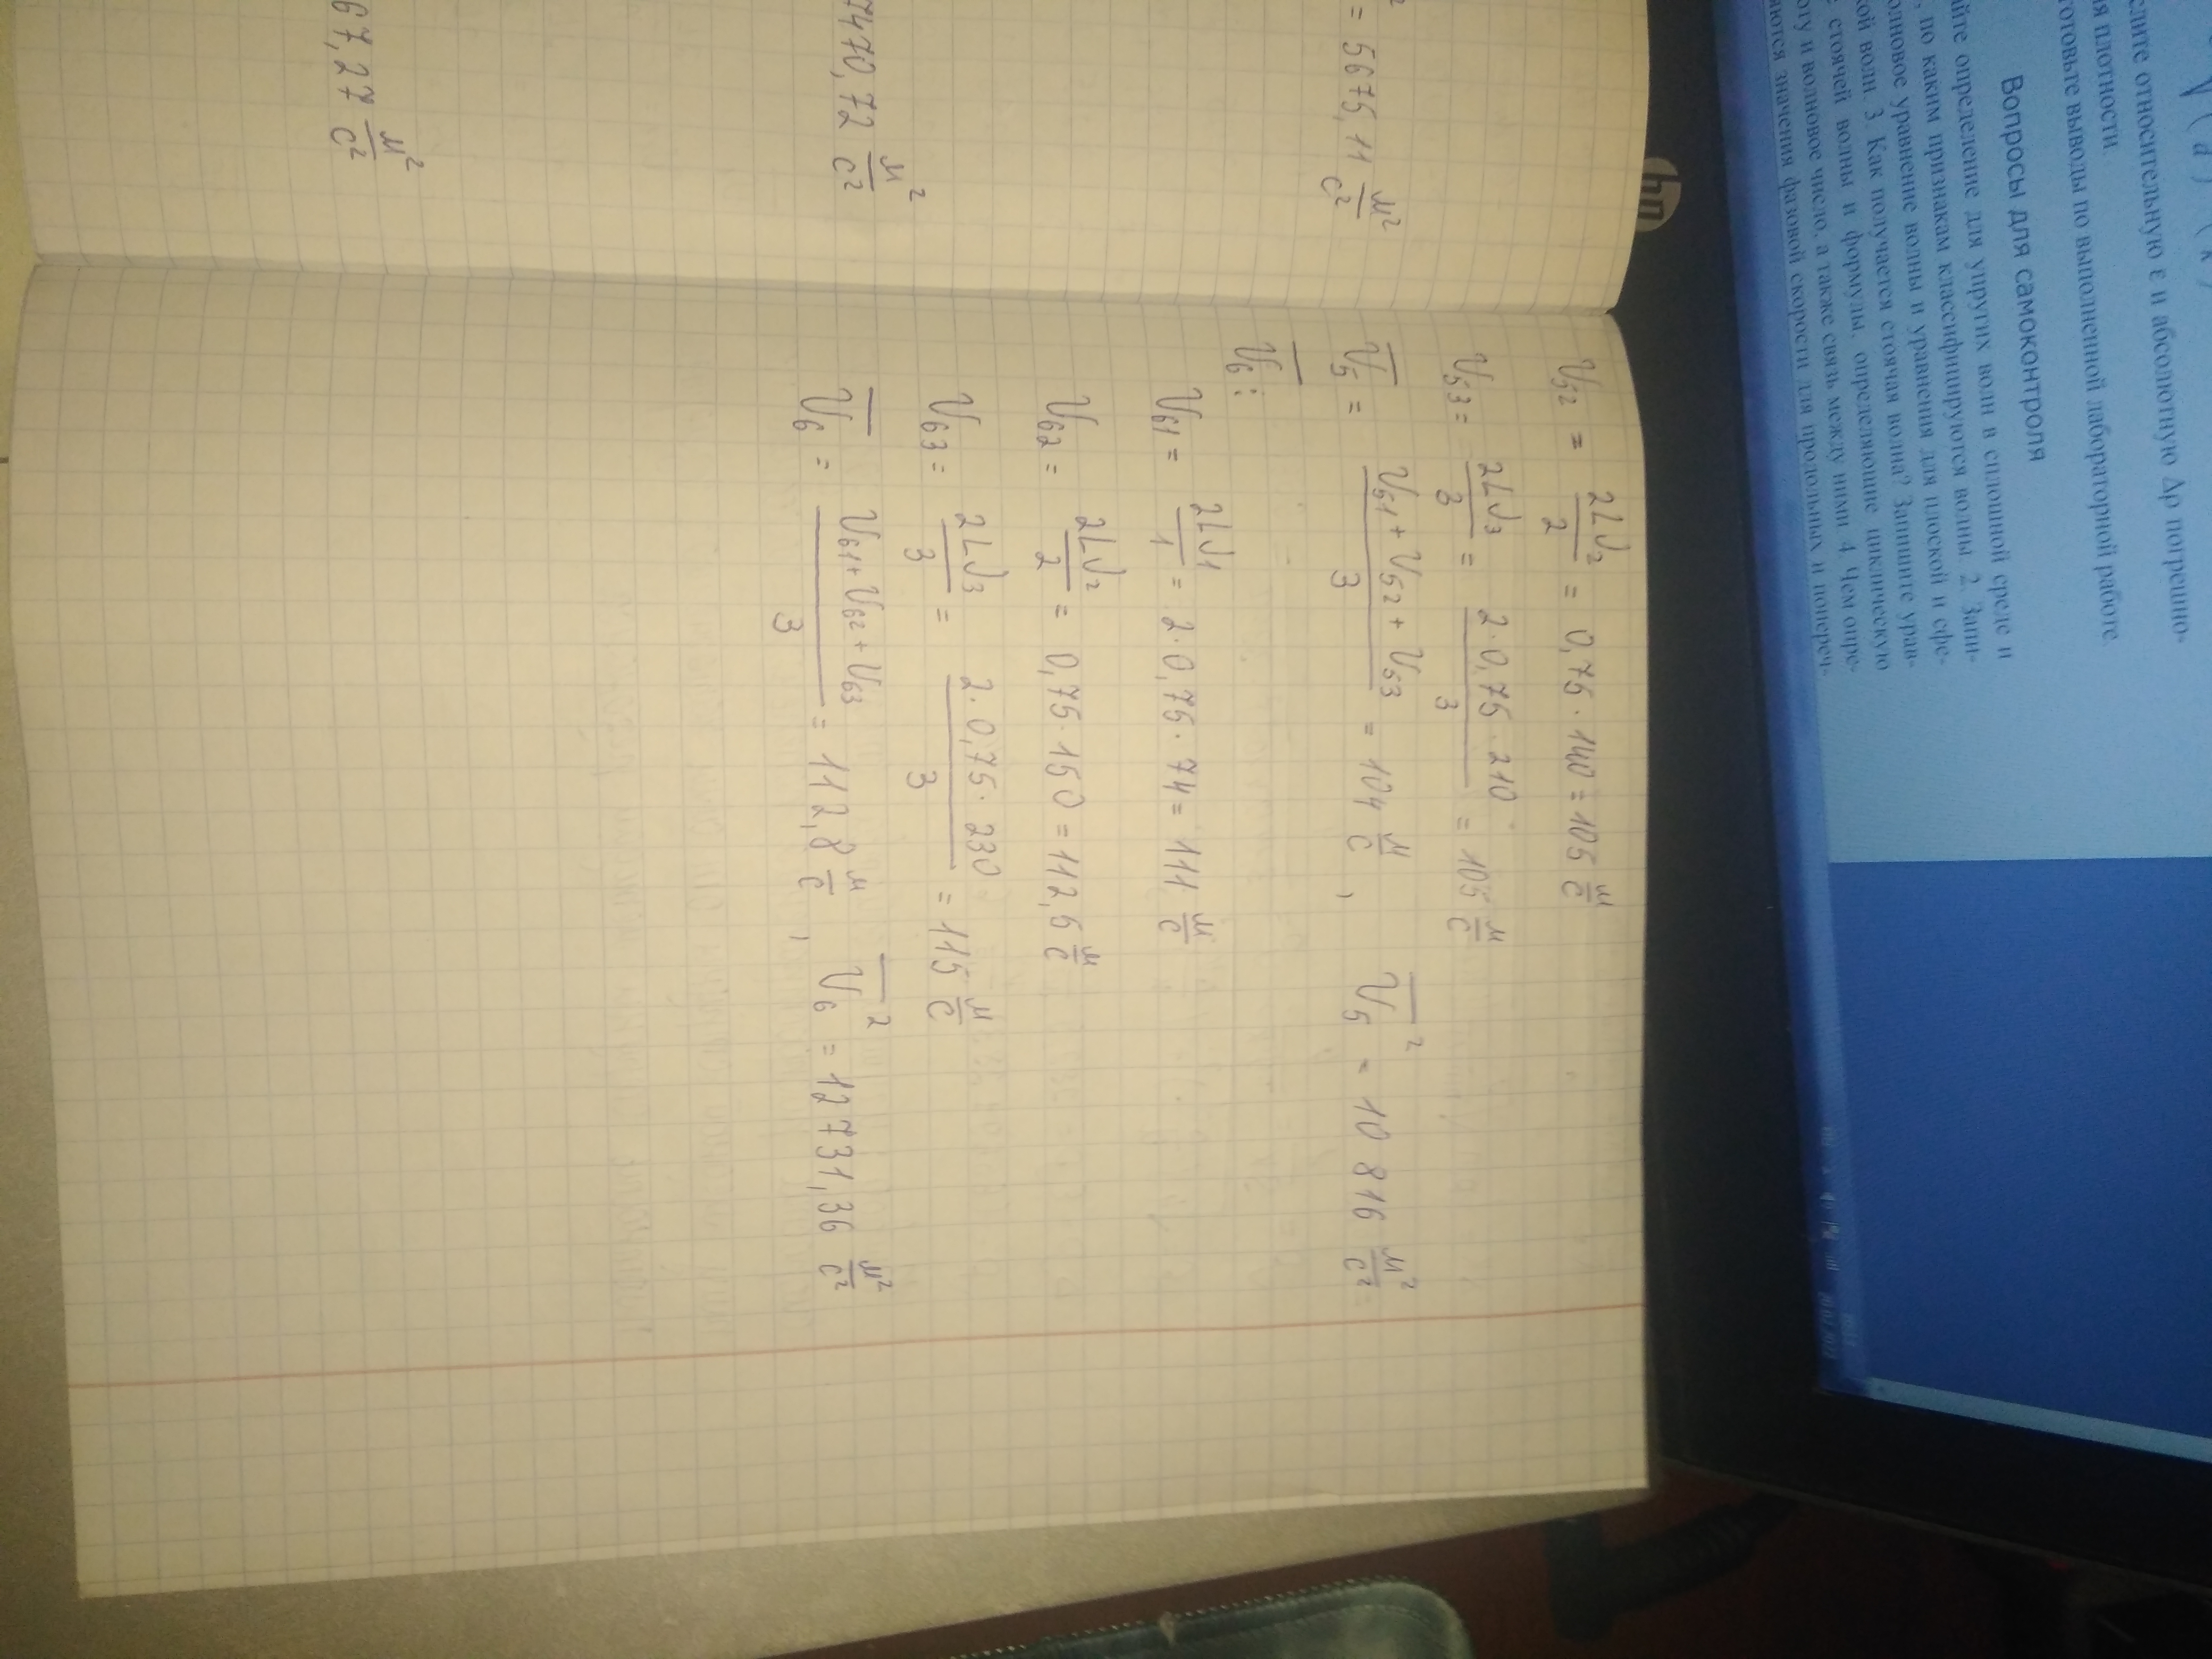 слите относительную ε и абсолютную Δρ погрешно-
ия плотности.
готовьте выводы по выполненной лабораторной работе.
Вопросы для самоконтроля
айте определение для упругих волн в сплошной среде и
, по каким признакам классифицируются волны. 2. Запи-
олновое уравнение волны и уравнения для плоской и сфе-
кой волн. 3. Как получается стоячая волна? Запишите урав-
е стоячей волны и формулы, определяющие циклическую
оту и волновое число, а также связь между ними. 4. Чем опре-
яются значения фазовой скорости для продольных и попереч-
20.02.2022
hp
= 5675,11 м²/с²
7470,72 м²/с²
67,27 м²/с²
V₅₂ = 2Lν₂/2 = 0,75 · 140 = 105 м/с
V₅₃ = 2Lν₃/3 = 2·0,75·210/3 = 105 м/с
V̅₅ = V₅₁+V₅₂+V₅₃/3 = 104 м/с , V̅₅² = 10 816 м²/с²
V̅₆ :
V₆₁ = 2Lν₁/1 = 2·0,75·74 = 111 м/с
V₆₂ = 2Lν₂/2 = 0,75·150 = 112,5 м/с
V₆₃ = 2Lν₃/3 = 2·0,75·230/3 = 115 м/с
V̅₆ = V₆₁+V₆₂+V₆₃/3 = 112,8 м/с , V̅₆² = 12731,36 м²/с²